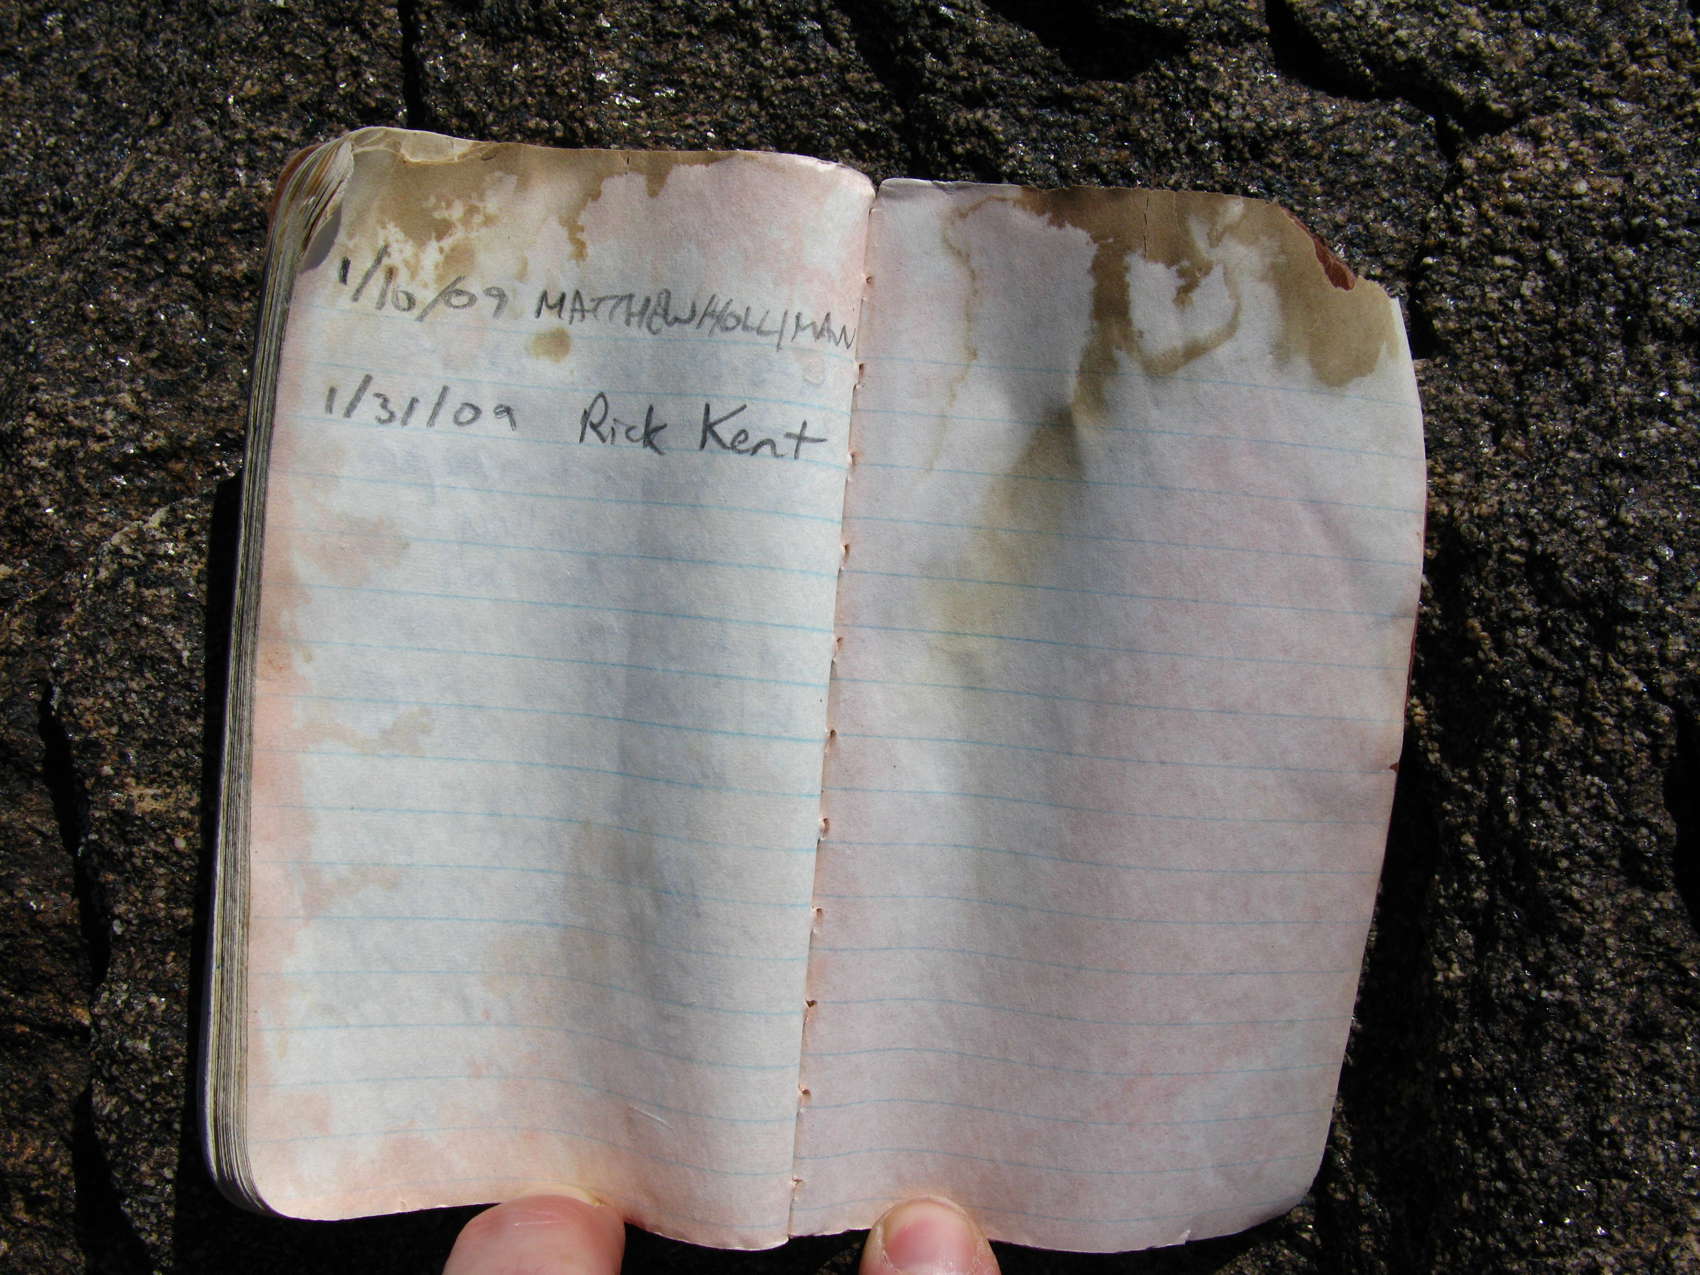 1/10/09 MATTHEW HOLLIMAN
1/31/09 Rick Kent